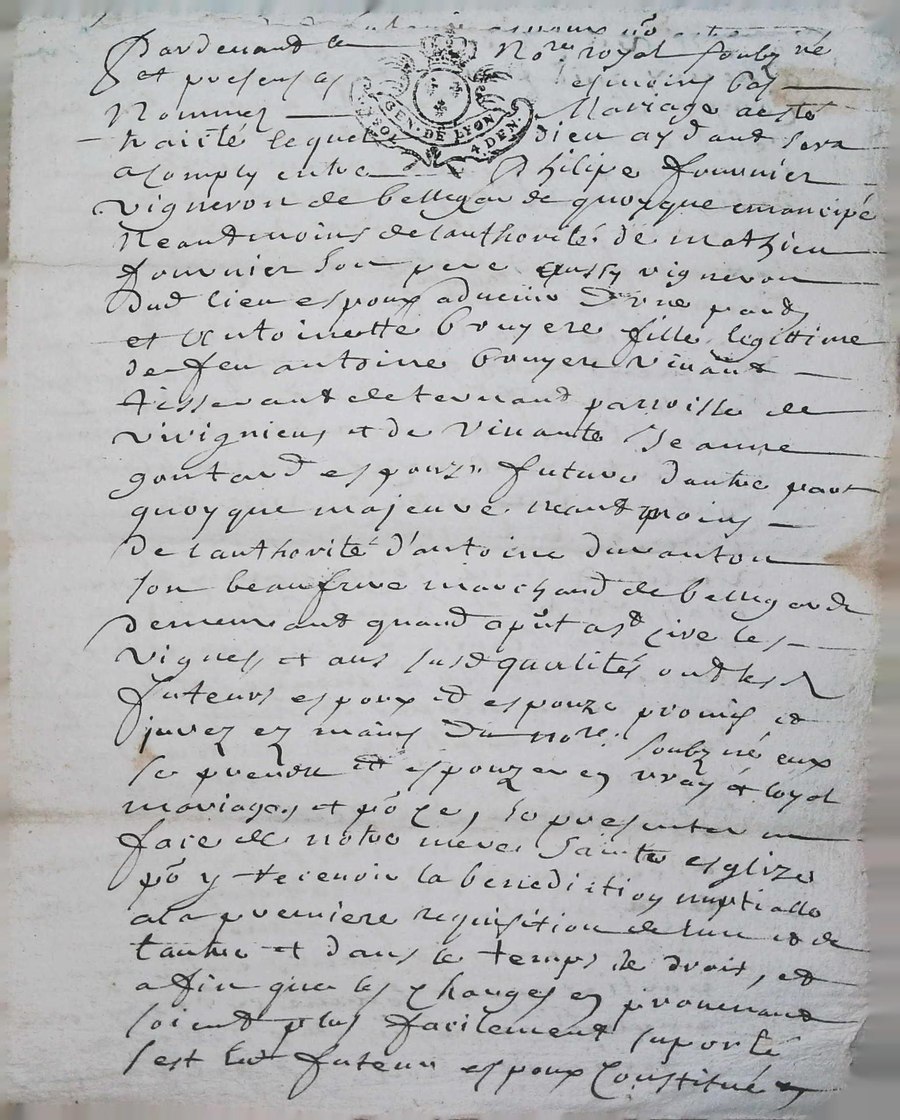 Pardevant le no.re royal soubz né
et presens les tesmoins bas
nommez mariage a esté
traicté lequel dieu aydant sera
acomply entre Philipe fournier
vigneron de bellegarde quoyque emancipé
neantmoins de lauthorité de mathieu
fournier son pere aussy vigneron
dud lieu espoux advenir d'une part
et Antoinette bruyere fille legittime
de feu antoine bruyere vivant
tisserant de ternand parroisse de
virignieu et de vivante Jeanne
goutard espouze future dautre part
quoyque majeure neantmoins
de lauthorité d'antoine duranton
son beaufrere marchand de bellegarde
demeurant quand a pñt a
vignes et aux susd qualités ont les d
futeurs espoux et espouze promis et
jurez ez mains du no.re soubz né eux
se prendre et espouzer en vray et loyal
mariage, et po ce, se presenter en
face de notre mere Sainte esglize
po y recevoir la benediction nuptialle
a la premiere requisition de lun et de
lautre et dans le temps de droit, et
afin que les charges en provenant
soient plus facilement suporté
sest led futeur espoux Constitué
GEN. DE LYON
4 DEN.